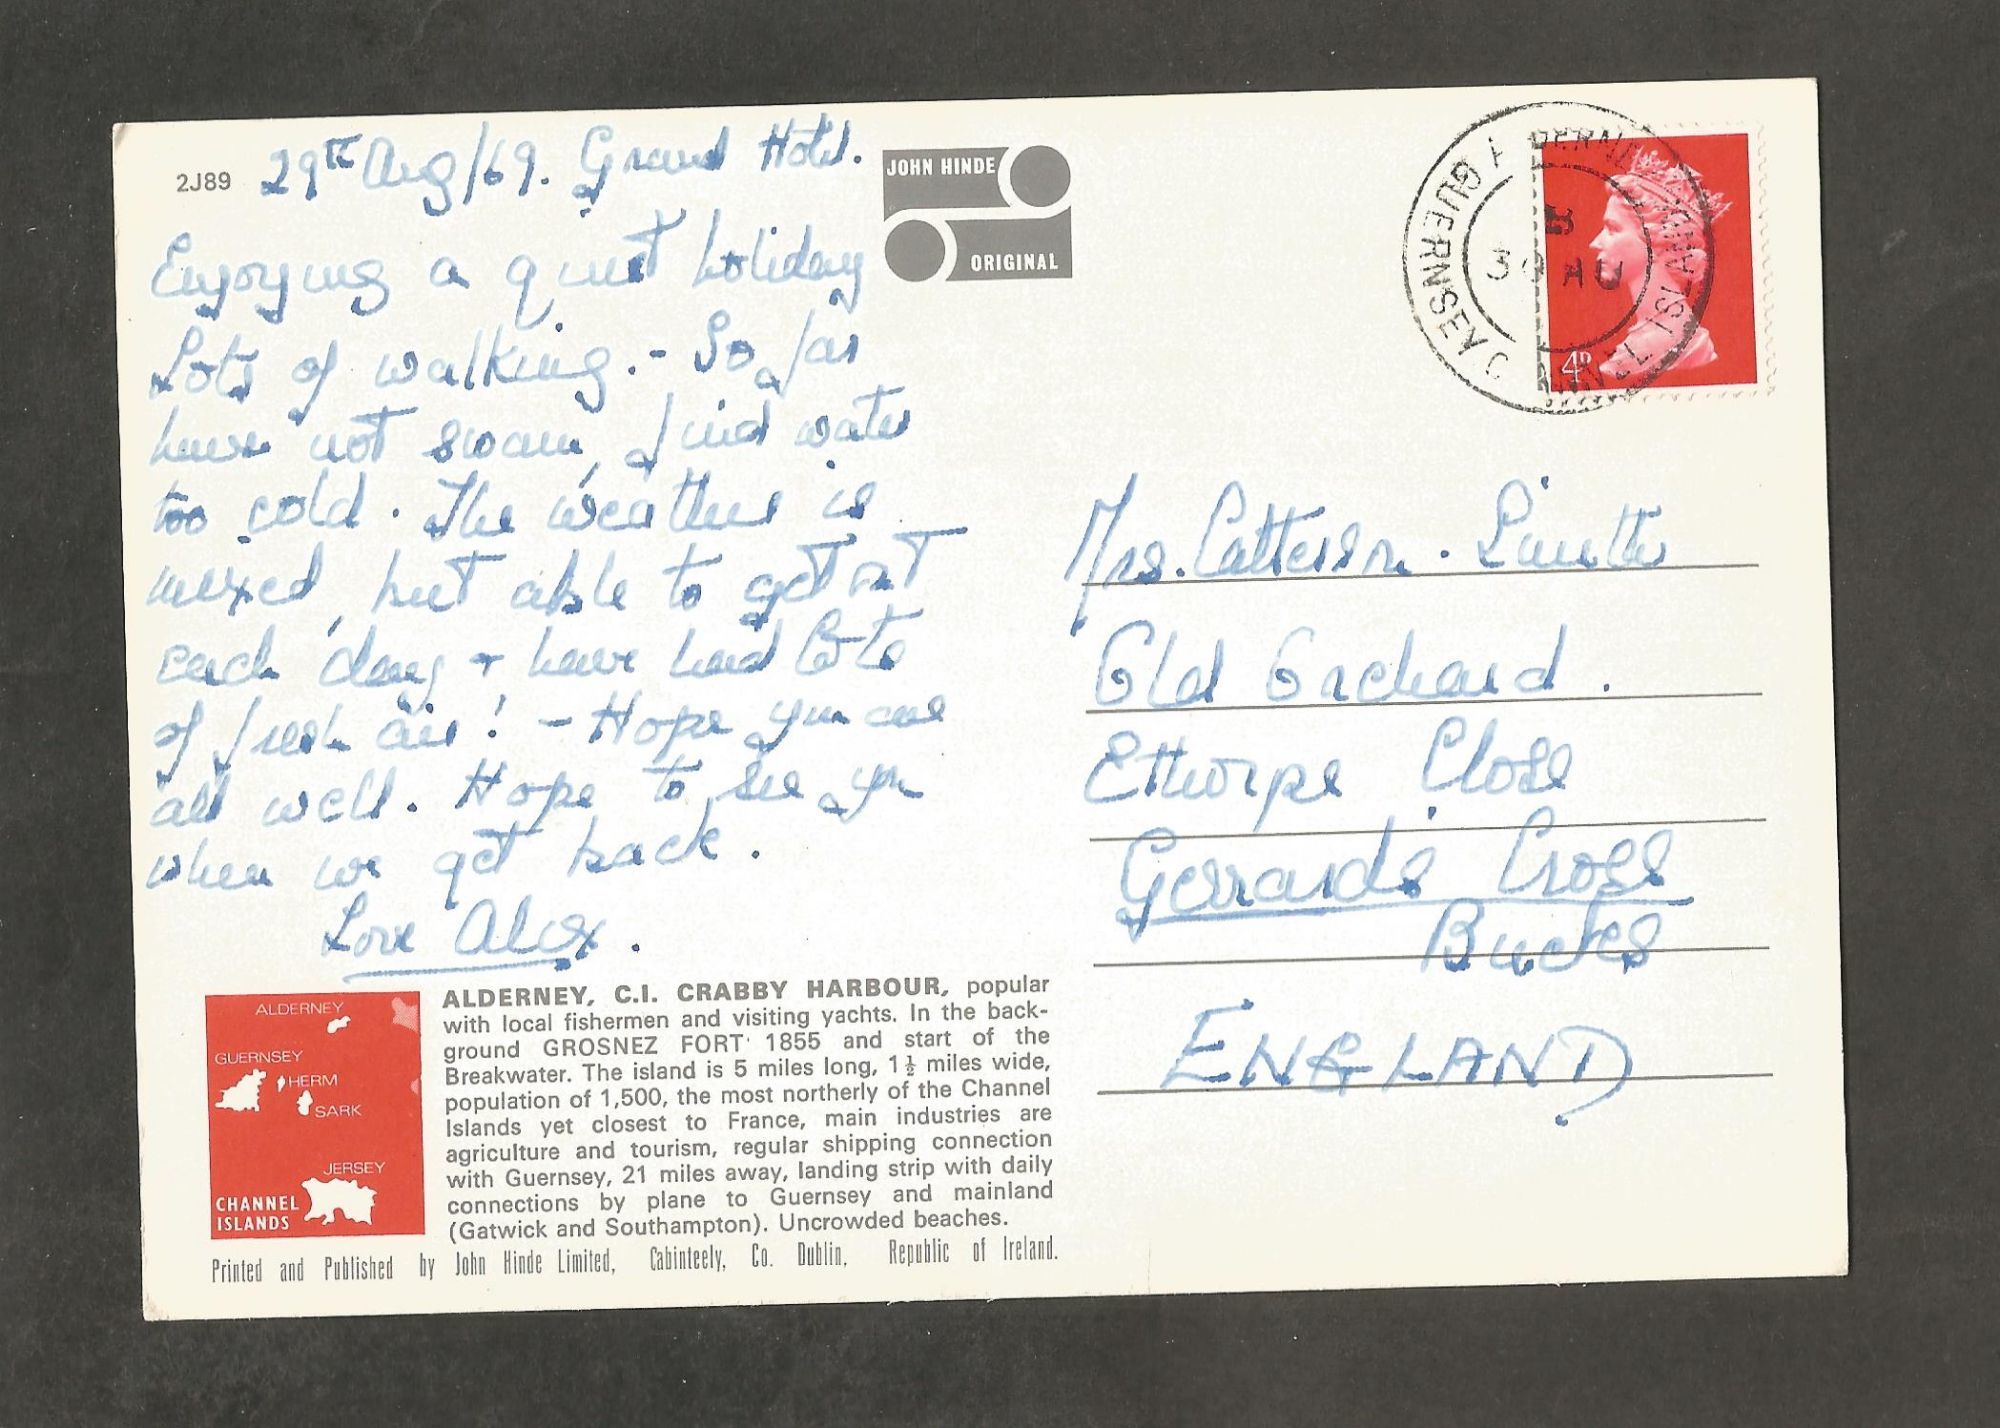 2J89
29th Aug/69. Grand Hotel.
Enjoying a quiet holiday
Lots of walking. - So far
have not swam, find water
too cold. The weather is
mixed, but able to get out
each day, + have had lots
of fresh air! - Hope you are
all well. Hope to see you
when we get back.
Love Alex.
JOHN HINDE
ORIGINAL
ALDERNEY
GUERNSEY
CHANNEL ISLANDS
30 AU
4D
Mrs. Catterson.
Old Orchard.
Ethorpe Close
Gerrards Cross
Bucks
ENGLAND
ALDERNEY
GUERNSEY
HERM
SARK
JERSEY
CHANNEL
ISLANDS
ALDERNEY, C.I. CRABBY HARBOUR, popular
with local fishermen and visiting yachts. In the back-
ground GROSNEZ FORT 1855 and start of the
Breakwater. The island is 5 miles long, 1½ miles wide,
population of 1,500, the most northerly of the Channel
Islands yet closest to France, main industries are
agriculture and tourism, regular shipping connection
with Guernsey, 21 miles away, landing strip with daily
connections by plane to Guernsey and mainland
(Gatwick and Southampton). Uncrowded beaches.
Printed and Published by John Hinde Limited, Cabinteely, Co. Dublin, Republic of Ireland.